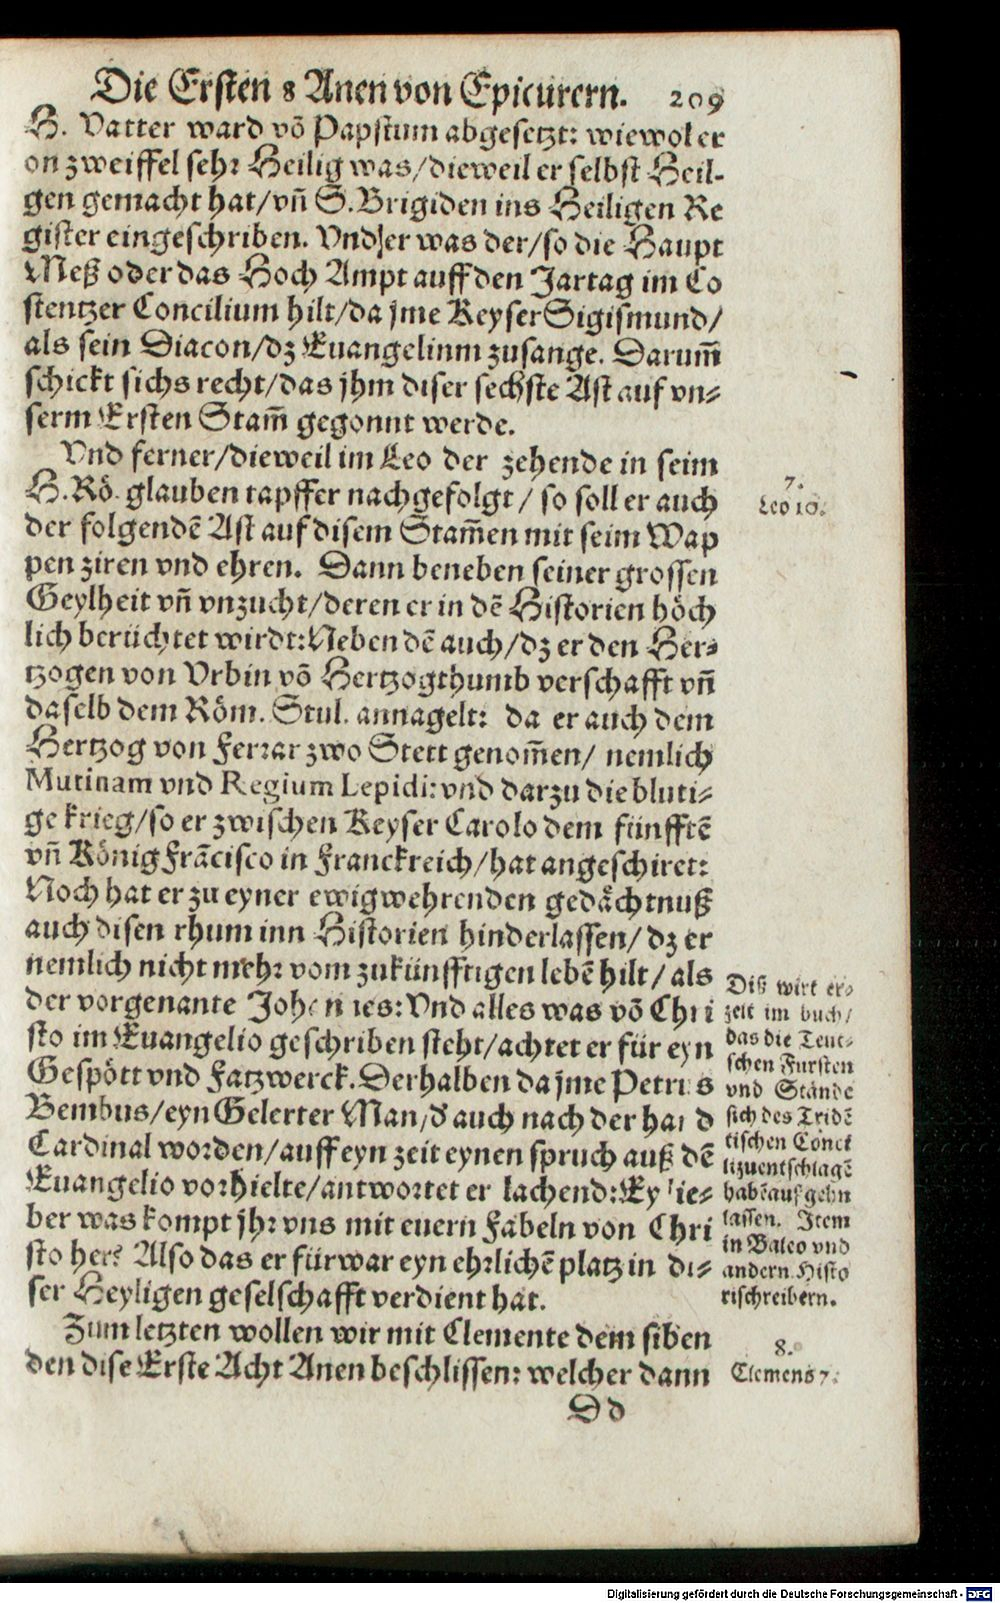 Die Ersten 8 Anen von Epicurern. 209
H. Vatter ward võ Papstum abgesetzt: wiewol er
on zweiffel sehr Heilig was/dieweil er selbst Heil-
gen gemacht hat/vñ S. Brigiden ins Heiligen Re
gister eingeschriben. Vnd er was der/so die Haupt
Meß oder das Hoch Ampt auff den Jartag im Co
stentzer Concilium hilt/da jme Keyser Sigismund/
als sein Diacon/dz Euangelinm zusange. Darum̃
schickt sichs recht/das jhm diser sechste Ast auf vn-
serm Ersten Stam̃ gegonnt werde.
Vnd ferner/dieweil im Leo der zehende in seim
H. Rö. glauben tapffer nachgefolgt/ so soll er auch
der folgendẽ Ast auf disem Stam̃en mit seim Wap
pen ziren vnd ehren. Dann beneben seiner grossen
Geylheit vñ vnzucht/deren er in dẽ Historien höch
lich berüchtet wirdt: Neben dẽ auch/dz er den Her-
tzogen von Vrbin võ Hertzogthumb verschafft vñ
daselb dem Röm. Stul. annagelt: da er auch dem
Hertzog von Ferrar zwo Stett genom̃en/ nemlich
Mutinam vnd Regium Lepidi: vnd darzu die bluti-
ge krieg/so er zwischen Keyser Carolo dem fünfftẽ
vñ König Frãcisco in Franckreich/hat angeschiret:
Noch hat er zu eyner ewigwehrenden gedächtnuß
auch disen rhum inn Historien hinderlassen/ dz er
nemlich nicht mehr vom zukünfftigen lebẽ hilt/ als
der vorgenante Johannes: Vnd alles was võ Chri
sto im Euangelio geschriben steht/achtet er für eyn
Gespött vnd Fatzwerck. Derhalben da jme Petrus
Bembus/eyn Gelerter Man/d' auch nach der hand
Cardinal worden/auff eyn zeit eynen spruch auß dẽ
Euangelio vorhielte/antwortet er lachend: Ey lie-
ber was kompt jhr vns mit euern Fabeln von Chri
sto her? Also das er fürwar eyn ehrlichẽ platz in di-
ser Heyligen geselschafft verdient hat.
Zum letzten wollen wir mit Clemente dem siben
den dise Erste Acht Anen beschlissen: welcher dann
Dd
7.
Leo 10.
Diß wirt er-
zelt im buch/
das die Teut-
schen Fursten
vnd Stände
sich des Tridẽ
tischen Concι
lizuentschlagẽ
habẽ auß gehn
lassen. Item
in Baleo vnd
andern Histo
rischreibern.
8.
Clemens 7.
Digitalisierung gefördert durch die Deutsche Forschungsgemeinschaft - DFG